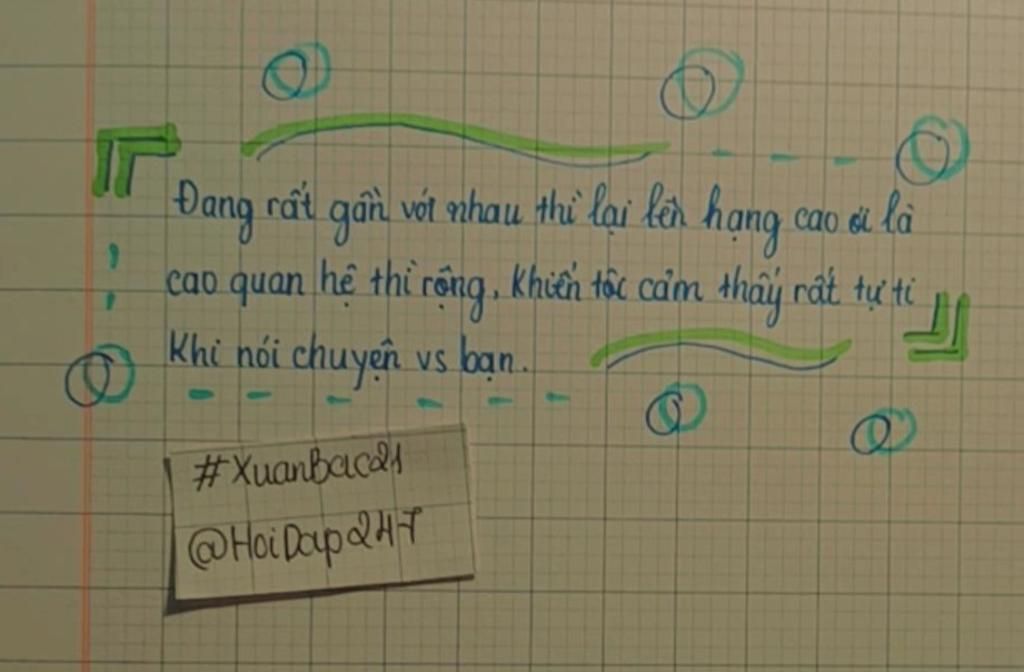 Đang rất gần với nhau thì lại lên hạng cao ơi là
cao quan hệ thì rộng, khiến tôc cảm thấy rất tự ti
khi nói chuyện vs bạn.
#XuanBac21
@HoiDap247